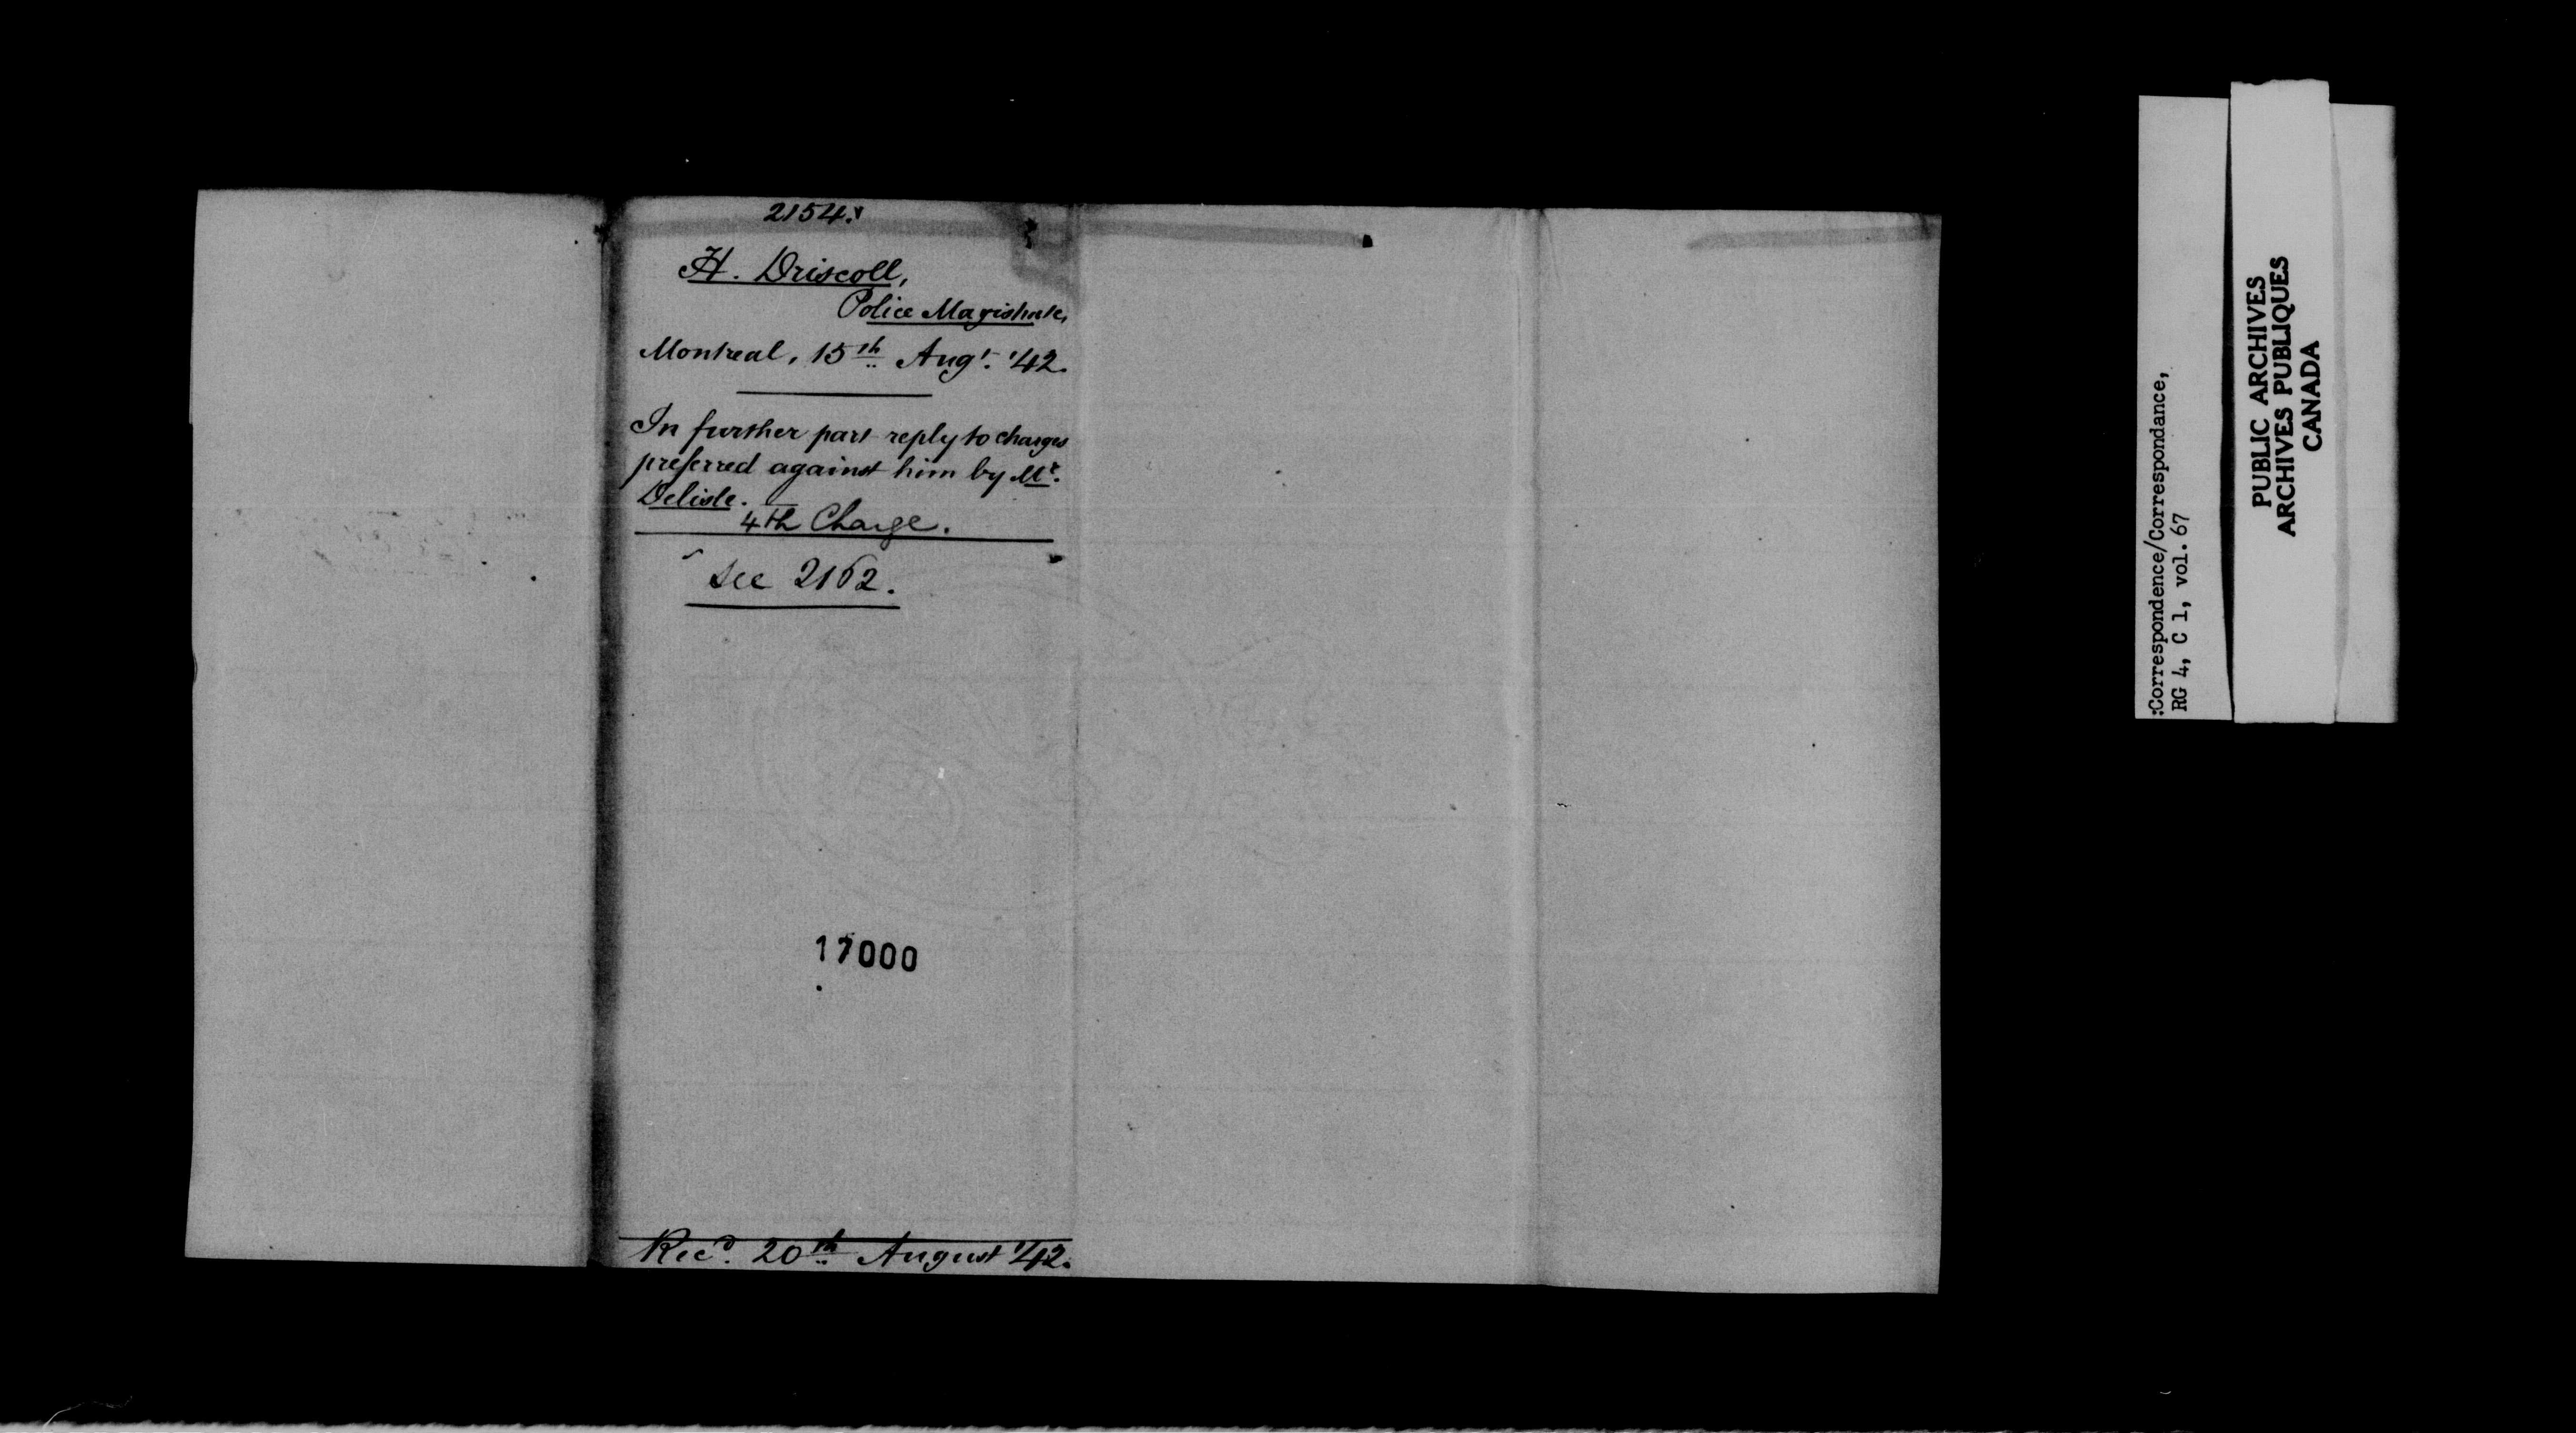 2154.
H. Driscoll,
Police Magistrate,
Montreal, 15th Augt. '42.
In further part reply to charges
preferred against him by Mr.
Delisle.
4th Charge.
See 2162.
17000
Recd. 20th August '42.
:Correspondence/Correspondance,
RG 4, C 1, vol. 67
PUBLIC ARCHIVES
ARCHIVES PUBLIQUES
CANADA